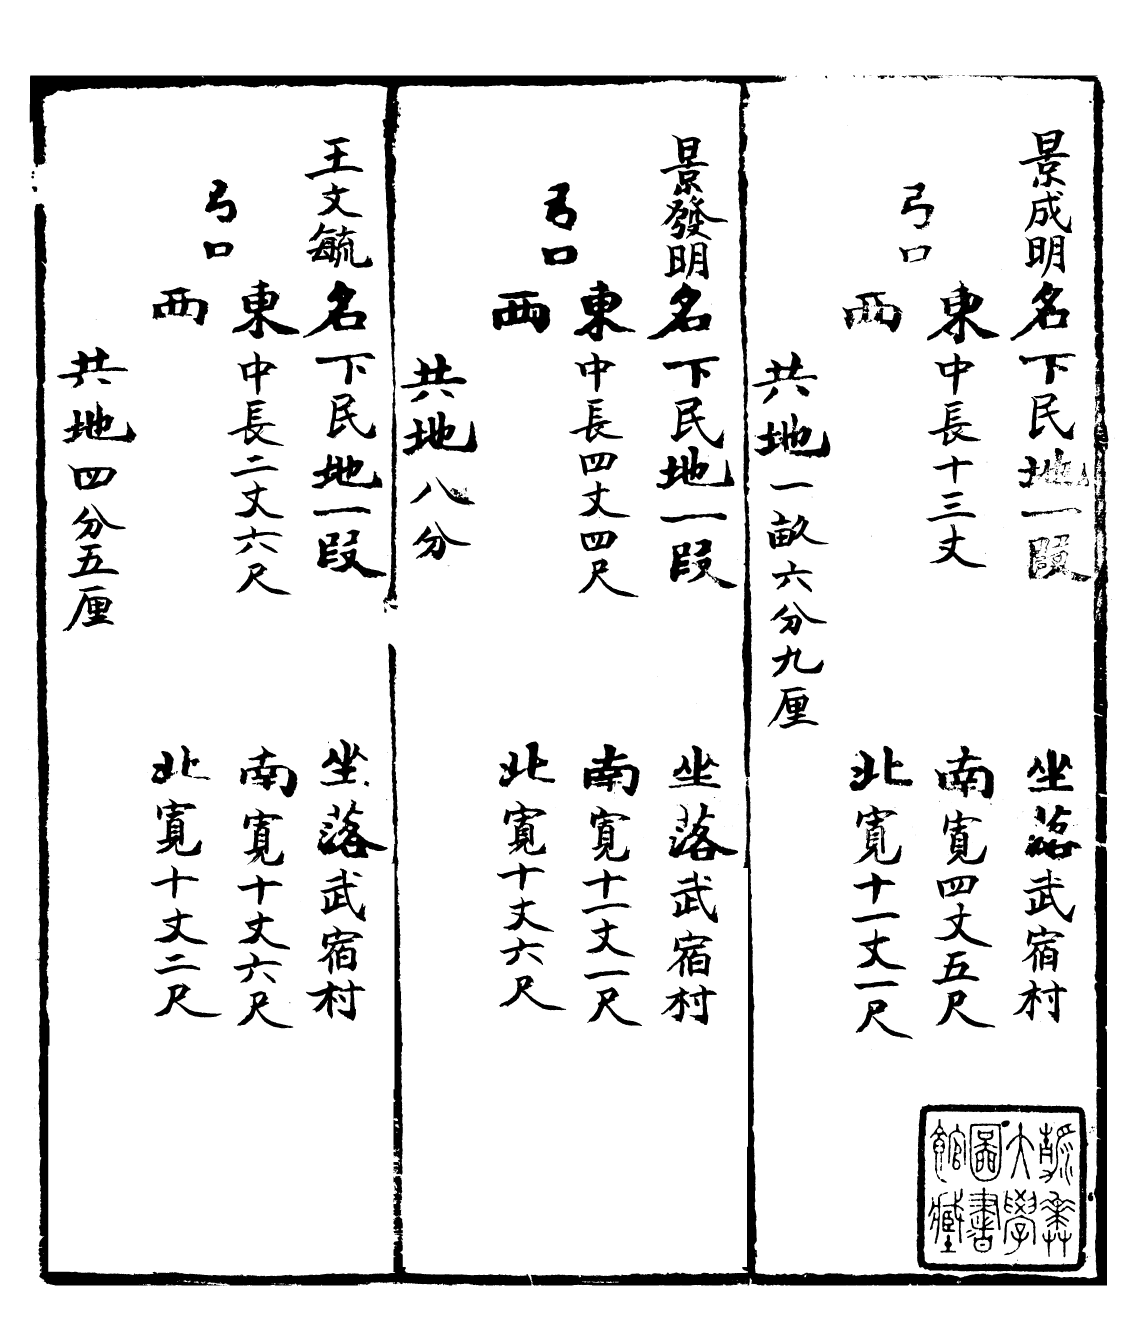 景成明名下民地一段 坐落武宿村
弓口 東 中長十三丈 南寬四丈五尺
西 北寬十一丈一尺
共地一畝六分九厘
景發明名下民地一段 坐落武宿村
弓口 東 中長四丈四尺 南寬十一丈一尺
西 北寬十丈六尺
共地八分
王文毓名下民地一段 坐落武宿村
弓口 東 中長二丈六尺 南寬十丈六尺
西 北寬十丈二尺
共地四分五厘
大學
圖書
館藏